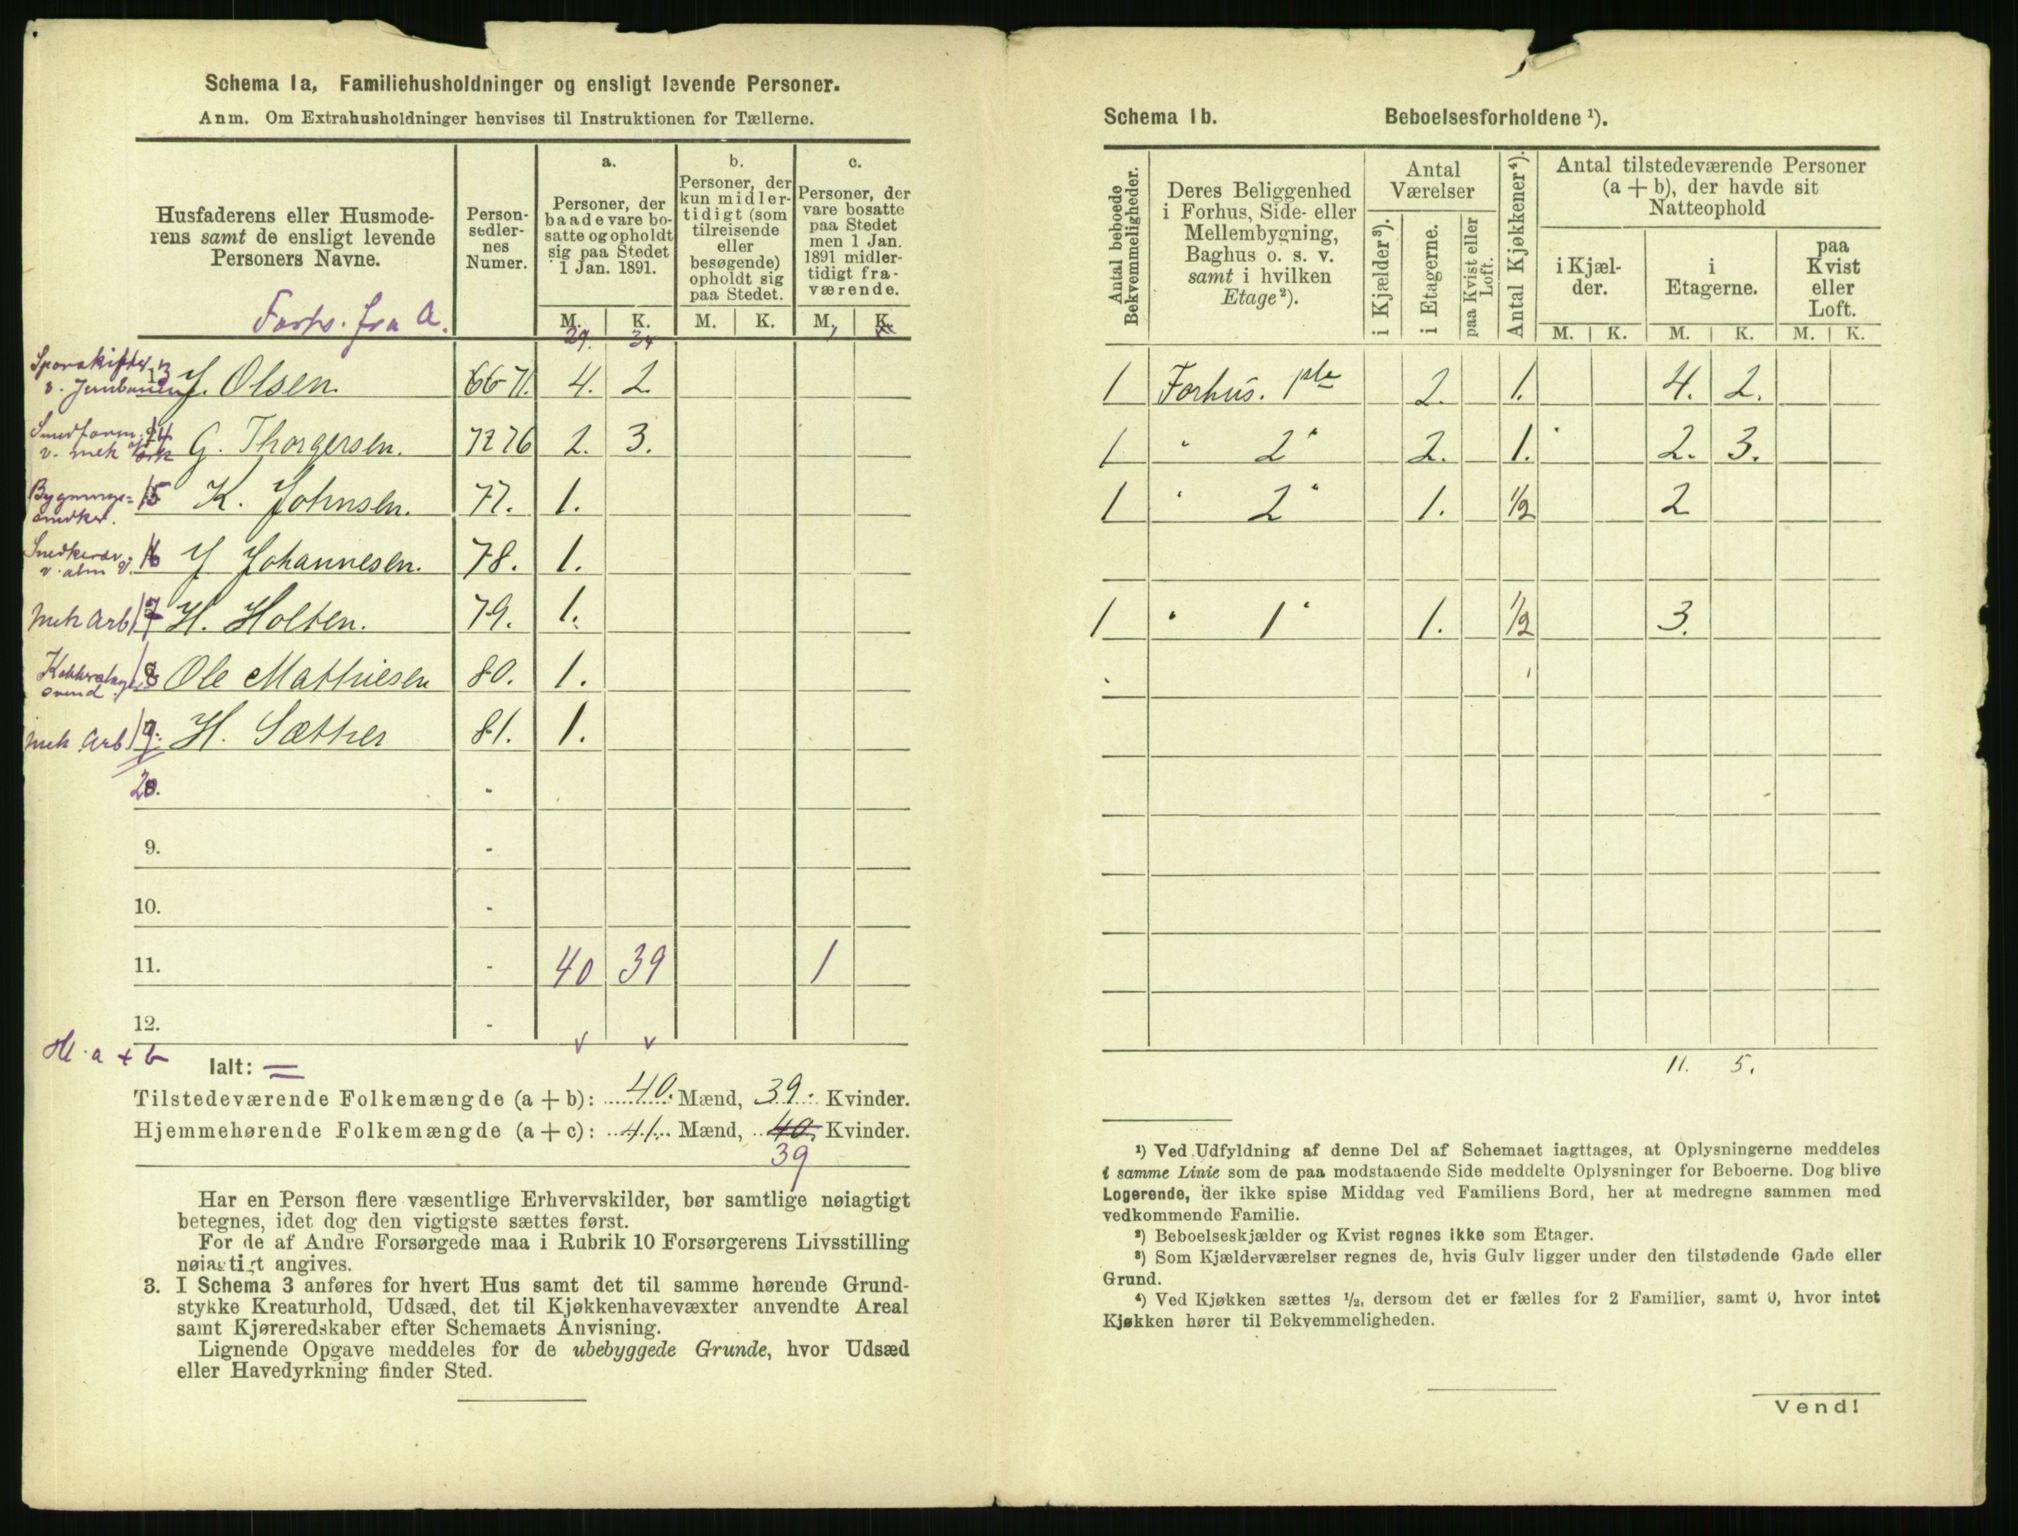 Schema 1a, Familiehusholdninger og ensligt levende Personer.
Anm. Om Extrahusholdninger henvises til Instruktionen for Tællerne.
Husfaderens eller Husmode-
rens samt de ensligt levende
Personers Navne.
Person-
sedler-
nes
Numer.
a.
Personer, der
baade vare bo-
satte og opholdt
sig paa Stedet
1 Jan. 1891.
b.
Personer, der
kun midler-
tidigt (som
tilreisende
eller
besøgende)
opholdt sig
paa Stedet.
c.
Personer, der
vare bosatte
paa Stedet
men 1 Jan.
1891 midler-
tidigt fra-
værende.
Forts. fra A.
M. K. M. K. M. K.
29. 34
13 J. Olsen. 66-71. 4. 2
14 G. Thorgersen. 72 76 2. 3.
15 K. Johnsen. 77. 1.
16 J Johannesen. 78. 1.
Mek Arb 17 H. Holten. 79. 1.
18 Ole Mathiesen 80. 1.
Mek. Arb 19. H. Sæther 81. 1.
20. -
9. -
10. -
11. - 40 39 1
12. -
a + b
Ialt:
Tilstedeværende Folkemængde (a + b): 40. Mænd, 39. Kvinder.
Hjemmehørende Folkemængde (a + c): 41. Mænd, 40. Kvinder.
39
Har en Person flere væsentlige Erhvervskilder, bør samtlige nøiagtigt
betegnes, idet dog den vigtigste sættes først.
For de af Andre Forsørgede maa i Rubrik 10 Forsørgerens Livsstilling
nøiagtigt angives.
3. I Schema 3 anføres for hvert Hus samt det til samme hørende Grund-
stykke Kreaturhold, Udsæd, det til Kjøkkenhavevæxter anvendte Areal
samt Kjøreredskaber efter Schemaets Anvisning.
Lignende Opgave meddeles for de ubebyggede Grunde, hvor Udsæd
eller Havedyrkning finder Sted.
Schema 1b. Beboelsesforholdene ¹).
Antal beboede
Bekvemmeligheder.
Deres Beliggenhed
i Forhus, Side- eller
Mellembygning,
Baghus o. s. v.
samt i hvilken
Etage²).
Antal
Værelser
i Kjælder³).
i Etagerne.
paa Kvist eller
Loft.
Antal Kjøkkener⁴).
Antal tilstedeværende Personer
(a + b), der havde sit
Natteophold
i Kjæl-
der.
i
Etagerne.
paa
Kvist
eller
Loft.
M. K. M. K. M. K.
1 Forhus. 2. 1. 4. 2.
1 " 2" 2. 1. 2. 3.
1 " 2" 1. ½ 2
1 " 1" 1. ½ 3.
11. 5.
¹) Ved Udfyldning af denne Del af Schemaet iagttages, at Oplysningerne meddeles
i samme Linie som de paa modstaaende Side meddelte Oplysninger for Beboerne. Dog blive
Logerende, der ikke spise Middag ved Familiens Bord, her at medregne sammen med
vedkommende Familie.
²) Beboelseskjælder og Kvist regnes ikke som Etager.
³) Som Kjælderværelser regnes de, hvis Gulv ligger under den tilstødende Gade eller
Grund.
⁴) Ved Kjøkken sættes ½, dersom det er fælles for 2 Familier, samt 0, hvor intet
Kjøkken hører til Bekvemmeligheden.
Vend!